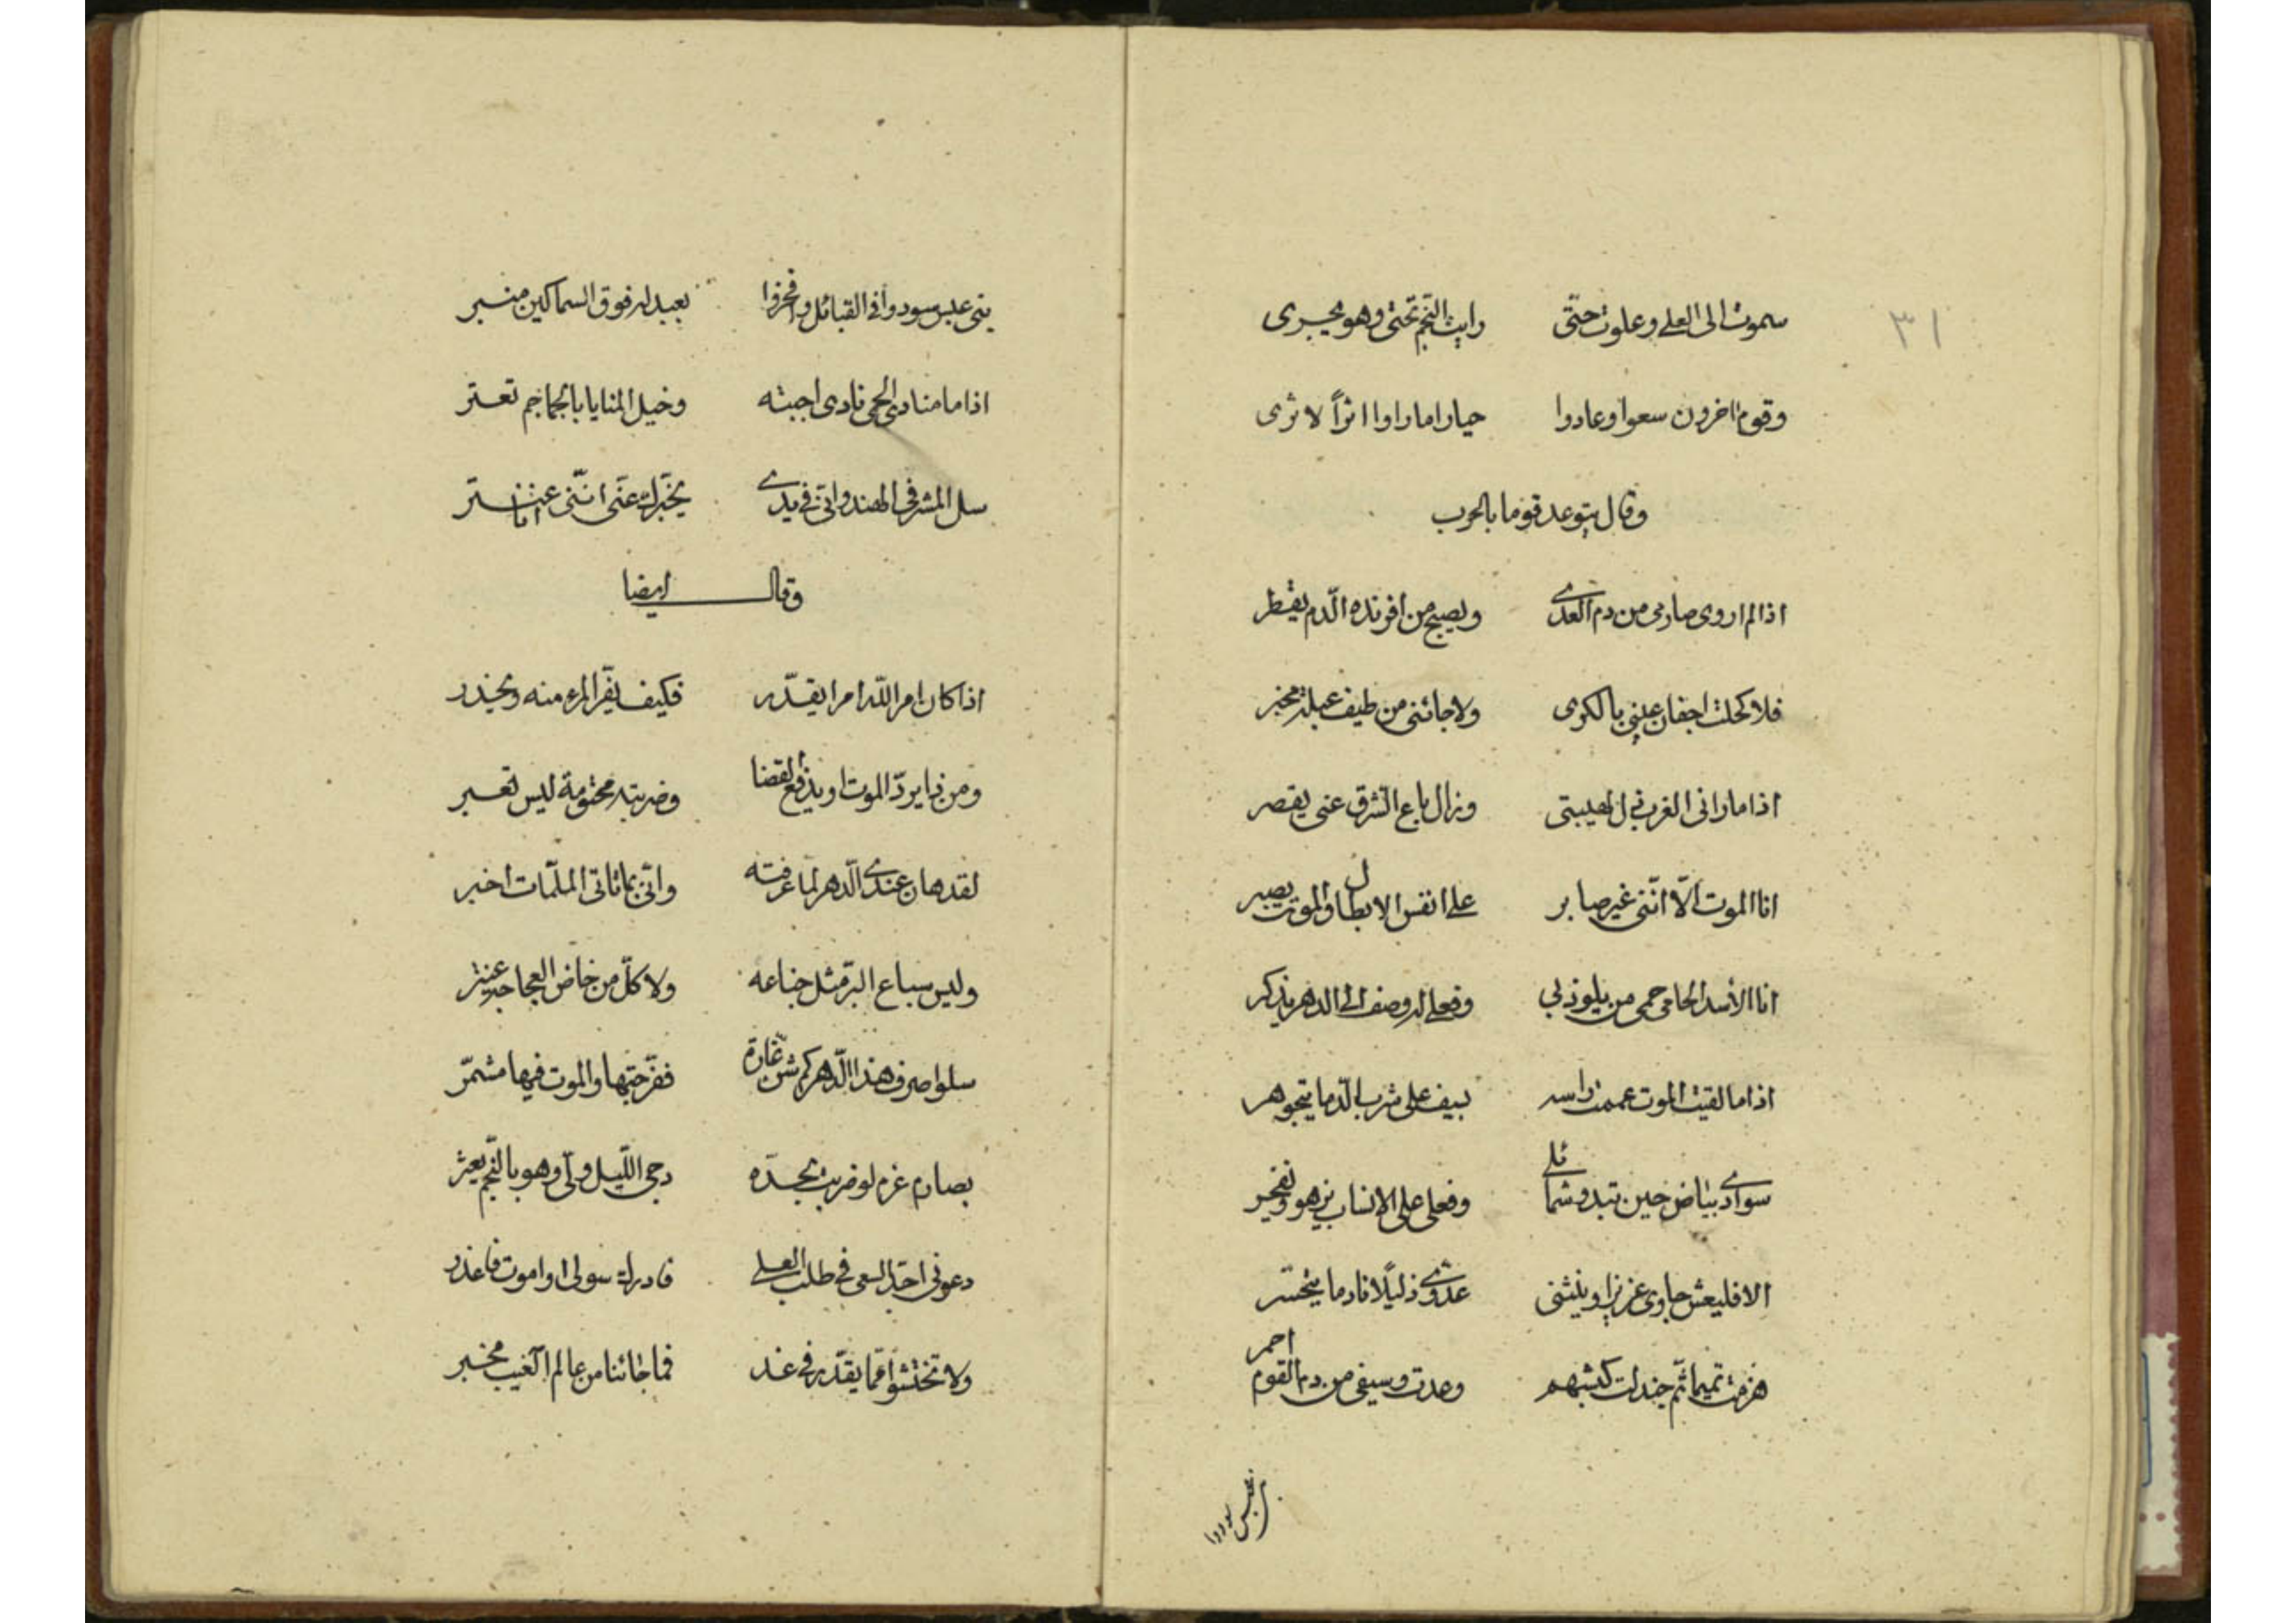 ٣١
سموت الى العلى وعلوت حتّى رايت النّجم تحتى وهو يجرى
وقوم اخرون سعوا وعادوا حيارا ما راوا اثراً لاثرى
وقال يتوعد قوما بالحرب
اذا لم اروى صارمى من دم العدى ويصبح من افرنده الدّم يقطر
فلا كحلت اجفان عينى بالكرى ولا جائنى من طيف عبلة مخبر
اذا ما رانى الغرب ذل لهيبتى وزال باع الشّرق عنى يقصر
انا الموت الّا انّنى غير صابر على انفس الابطال والموت يصبر
انا الأسد الحامى حمى من يلوذ بى وفعلى له وصف الى الدهر يذكر
اذا ما لقيت الموت عممت راسه بسيف على شرب الدّما يتجوهر
سوادى بياض حين تبدو شمائلى وفعلى على الانساب يزهو ويفخر
الا فليعش جاوى عزيزا وينثنى عدوّى ذليلًا نادما يتحسر
هزمت تميما ثمّ جندلت كبشهم وعدت وسيفى من دم القوم احمر
بنى عبس سودوا
بنى عبس سودوا فى القبائل وافخروا بعبد له فوق السماكين منبر
اذا ما منادى الحى نادى اجبته وخيل المنايا بالجماجم تعتر
سل المشرفى الهندوانى فى يدى يخبّرك عنّى انّنى انا عنتر
وقال ايضا
اذا كان امر اللّه امرا يقدّر فكيف يفرّ المرء منه ويحذر
ومن ذا يردّ الموت او يدفع القضا وضربته محتومة ليس تعبر
لقد هان عندى الّدهر لما عرفته وانّى بما تاتى الملمّات اخبر
وليس سباع البرّ مثل ضباعه ولا كلّ من خاض العجاجة عنتر
سلوا صرف هذا الّدهر كم شنّ غارة ففرّجتها والموت فيها مشمّر
بصارم عزم لو ضربت بحدّه دجى اللّيل ولّى وهو بالنّجم يعثر
دعونى اجدّ السعى فى طلب العلى فادرك سولى او اموت فاعذر
ولا تختشوا ممّا يقدّر فى غد فما جائنا من عالم الغيب مخبر